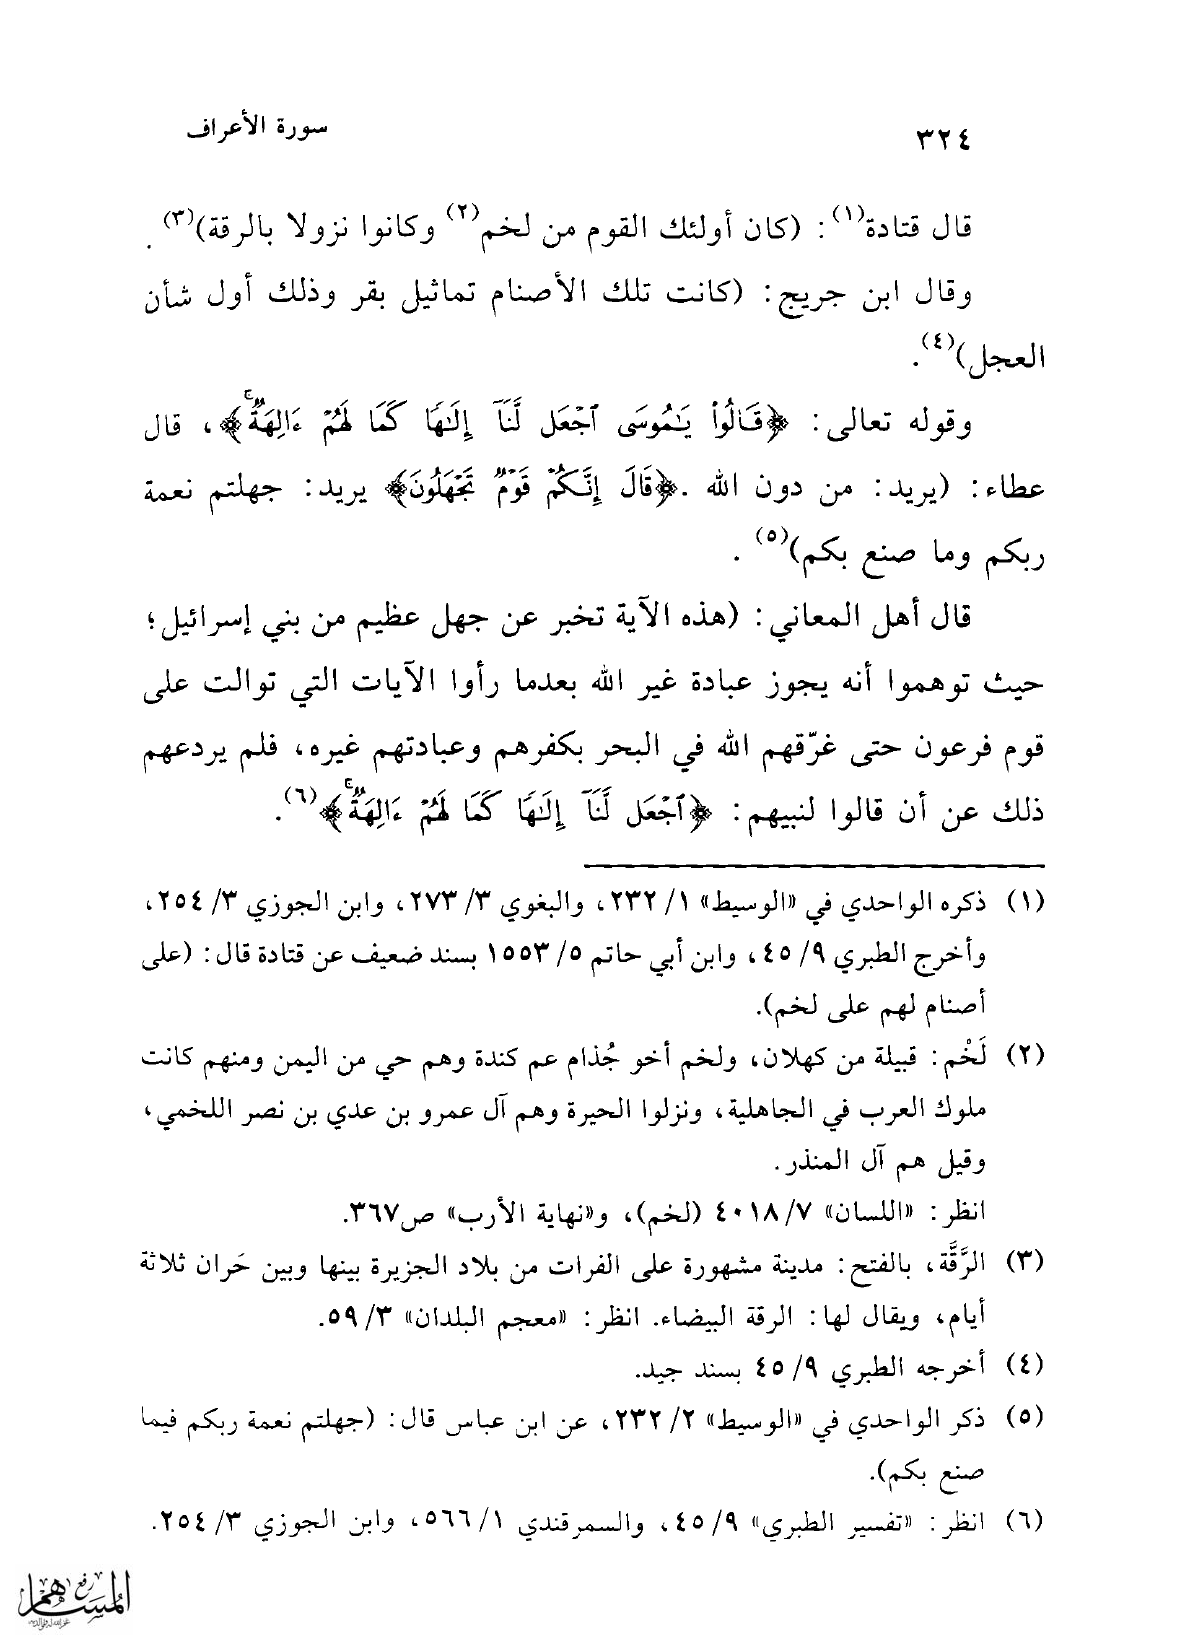 ٣٢٤
سورة الأعراف
قال قتادة(١): (كان أولئك القوم من لخم(٢) وكانوا نزولا بالرقة)(٣).
وقال ابن جريج: (كانت تلك الأصنام تماثيل بقر وذلك أول شأن
العجل)(٤).
وقوله تعالى: ﴿قَالُواْ يَٰمُوسَى ٱجْعَل لَّنَآ إِلَٰهًا كَمَا لَهُمْ ءَالِهَةٌۚ﴾، قال
عطاء: (يريد: من دون الله .﴿قَالَ إِنَّكُمْ قَوْمٌ تَجْهَلُونَ﴾ يريد: جهلتم نعمة
ربكم وما صنع بكم)(٥) .
قال أهل المعاني: (هذه الآية تخبر عن جهل عظيم من بني إسرائيل؛
حيث توهموا أنه يجوز عبادة غير الله بعدما رأوا الآيات التي توالت على
قوم فرعون حتى غرّقهم الله في البحر بكفرهم وعبادتهم غيره، فلم يردعهم
ذلك عن أن قالوا لنبيهم: ﴿ٱجْعَل لَّنَآ إِلَٰهًا كَمَا لَهُمْ ءَالِهَةٌۚ﴾(٦).
(١) ذكره الواحدي في «الوسيط» ١/ ٢٣٢، والبغوي ٣/ ٢٧٣، وابن الجوزي ٣/ ٢٥٤،
وأخرج الطبري ٩/ ٤٥، وابن أبي حاتم ٥/ ١٥٥٣ بسند ضعيف عن قتادة قال: (على
أصنام لهم على لخم).
(٢) لَخْم: قبيلة من كهلان، ولخم أخو جُذام عم كندة وهم حي من اليمن ومنهم كانت
ملوك العرب في الجاهلية، ونزلوا الحيرة وهم آل عمرو بن عدي بن نصر اللخمي،
وقيل هم آل المنذر.
انظر: «اللسان» ٧/ ٤٠١٨ (لخم)، و«نهاية الأرب» ص٣٦٧.
(٣) الرَّقَّة، بالفتح: مدينة مشهورة على الفرات من بلاد الجزيرة بينها وبين حَران ثلاثة
أيام، ويقال لها: الرقة البيضاء. انظر: «معجم البلدان» ٣/ ٥٩.
(٤) أخرجه الطبري ٩/ ٤٥ بسند جيد.
(٥) ذكر الواحدي في «الوسيط» ٢/ ٢٣٢، عن ابن عباس قال: (جهلتم نعمة ربكم فيما
صنع بكم).
(٦) انظر: «تفسير الطبري» ٩/ ٤٥، والسمرقندي ١/ ٥٦٦، وابن الجوزي ٣/ ٢٥٤.